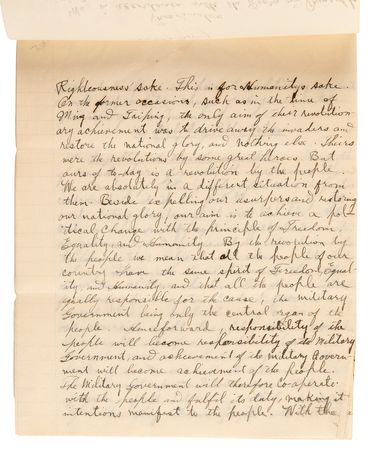 Righteousness' sake. This is for Humanity's sake.
On the former occasions, such as in the time of
Ming and Taiping, the only aim of their revolution-
ary achievement was to drive away the invaders and
restore the national glory, and nothing else. Theirs
were the revolutions by some great heroes. But
ours of to-day is a revolution by the people.
We are absolutely in a different situation from
them. Beside expelling our usurpers and restoring
our national glory, our aim is to achieve a pol-
itical change with the principle of Freedom,
Equality, and Humanity. By the revolution by
the people we mean that all the people of our
country the same spirit of Freedom, Equal-
ity, and Humanity, and that all the people are
equally responsible for the cause, the military
Government being only the central organ of the
people. Henceforward, responsibility of the
people will become responsibility of the Military
Government, and achievement of the military Govern-
ment will become achievement of the people.
The Military Government will therefore co-operate
with the people and fulfil its duty, making its
intentions manifest to the people. With the